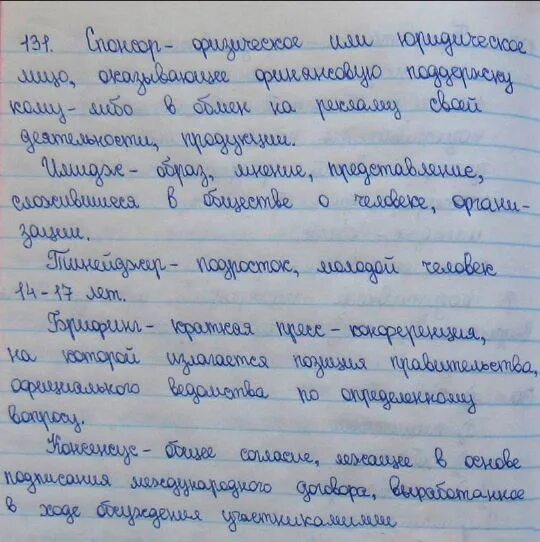 131. Спонсор - физическое или юридическое
лицо, оказывающее финансовую поддержку
кому-либо в обмен на рекламу своей
деятельности, продукции.
Имидж - образ, мнение, представление,
сложившиеся в обществе о человеке, органи-
зации.
Тинейджер - подросток, молодой человек
14-17 лет.
Брифинг - краткая пресс-конференция,
на которой излагается позиция правительства,
официального ведомства по определенному
вопросу.
Консенсус - общее согласие, лежащее в основе
подписания международного договора, выработанное
в ходе обсуждения участникамими